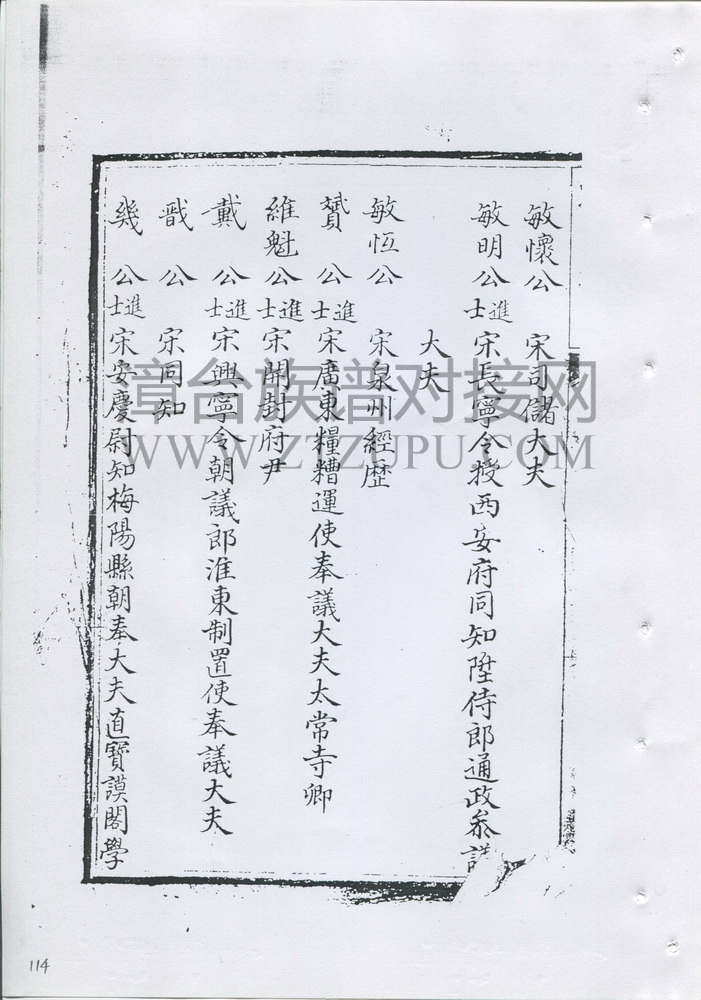 敏懷公 宋司儲大夫
敏明公 進士 宋長寧令授西安府同知陞侍郎通政叅議
大夫
敏恆公 宋泉州經歷
贇公 進士 宋廣東糧糟運使奉議大夫太常寺卿
維魁公 進士 宋開封府尹
戴公 進士 宋興寧令朝議郎淮東制置使奉議大夫
戩公 宋同知
幾公 進士 宋安慶尉知梅陽縣朝奉大夫直寶謨閣學
漳台族谱对接网
WWW.ZTZUPU.COM
114